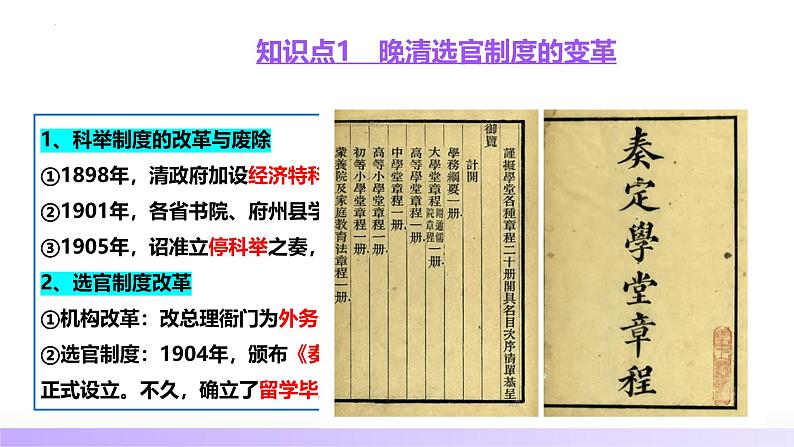 知识点1 晚清选官制度的变革
1、科举制度的改革与废除
①1898年，清政府加设经济特科
②1901年，各省书院、府州县学
③1905年，诏准立停科举之奏，
2、选官制度改革
①机构改革：改总理衙门为外务
②选官制度：1904年，颁布《奏
正式设立。不久，确立了留学毕
謹擬學堂各種章程二十册開具名目次序清單恭呈
御覽
計開
學務綱要一册
大學堂章程附通儒院章程一册
高等學堂章程一册
中學堂章程一册
高等小學堂章程一册
初等小學堂章程一册
蒙養院及家庭教育法章程一册
奏定學堂章程